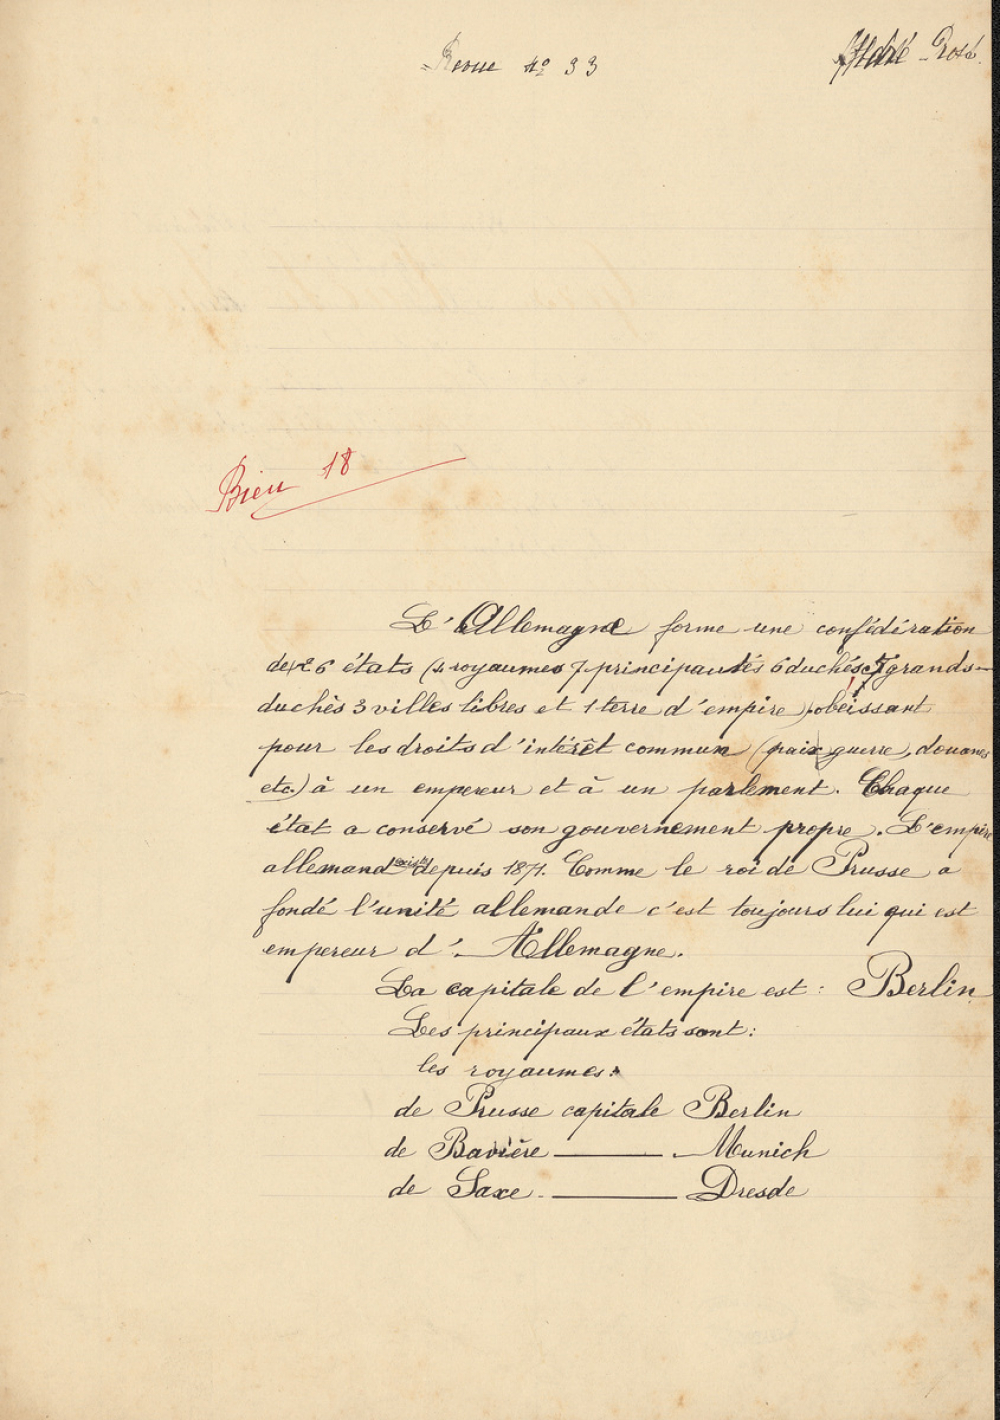 Revue Nº 33
Rosé
Bien 18
L'Allemagne forme une confédération
de 26 états (4 royaumes 7 principautés 6 duchés 5 grands-
duchés 3 villes libres et 1 terre d'empire) obéissant
pour les droits d'intérêt commun (paix guerre, douanes
etc.) à un empereur et à un parlement. Chaque
état a conservé son gouvernement propre. L'empire
allemand existe depuis 1871. Comme le roi de Prusse a
fondé l'unité allemande c'est toujours lui qui est
empereur d'Allemagne.
La capitale de l'empire est : Berlin
Les principaux états sont :
les royaumes :
de Prusse capitale Berlin
de Bavière ——— Munich
de Saxe ——— Dresde